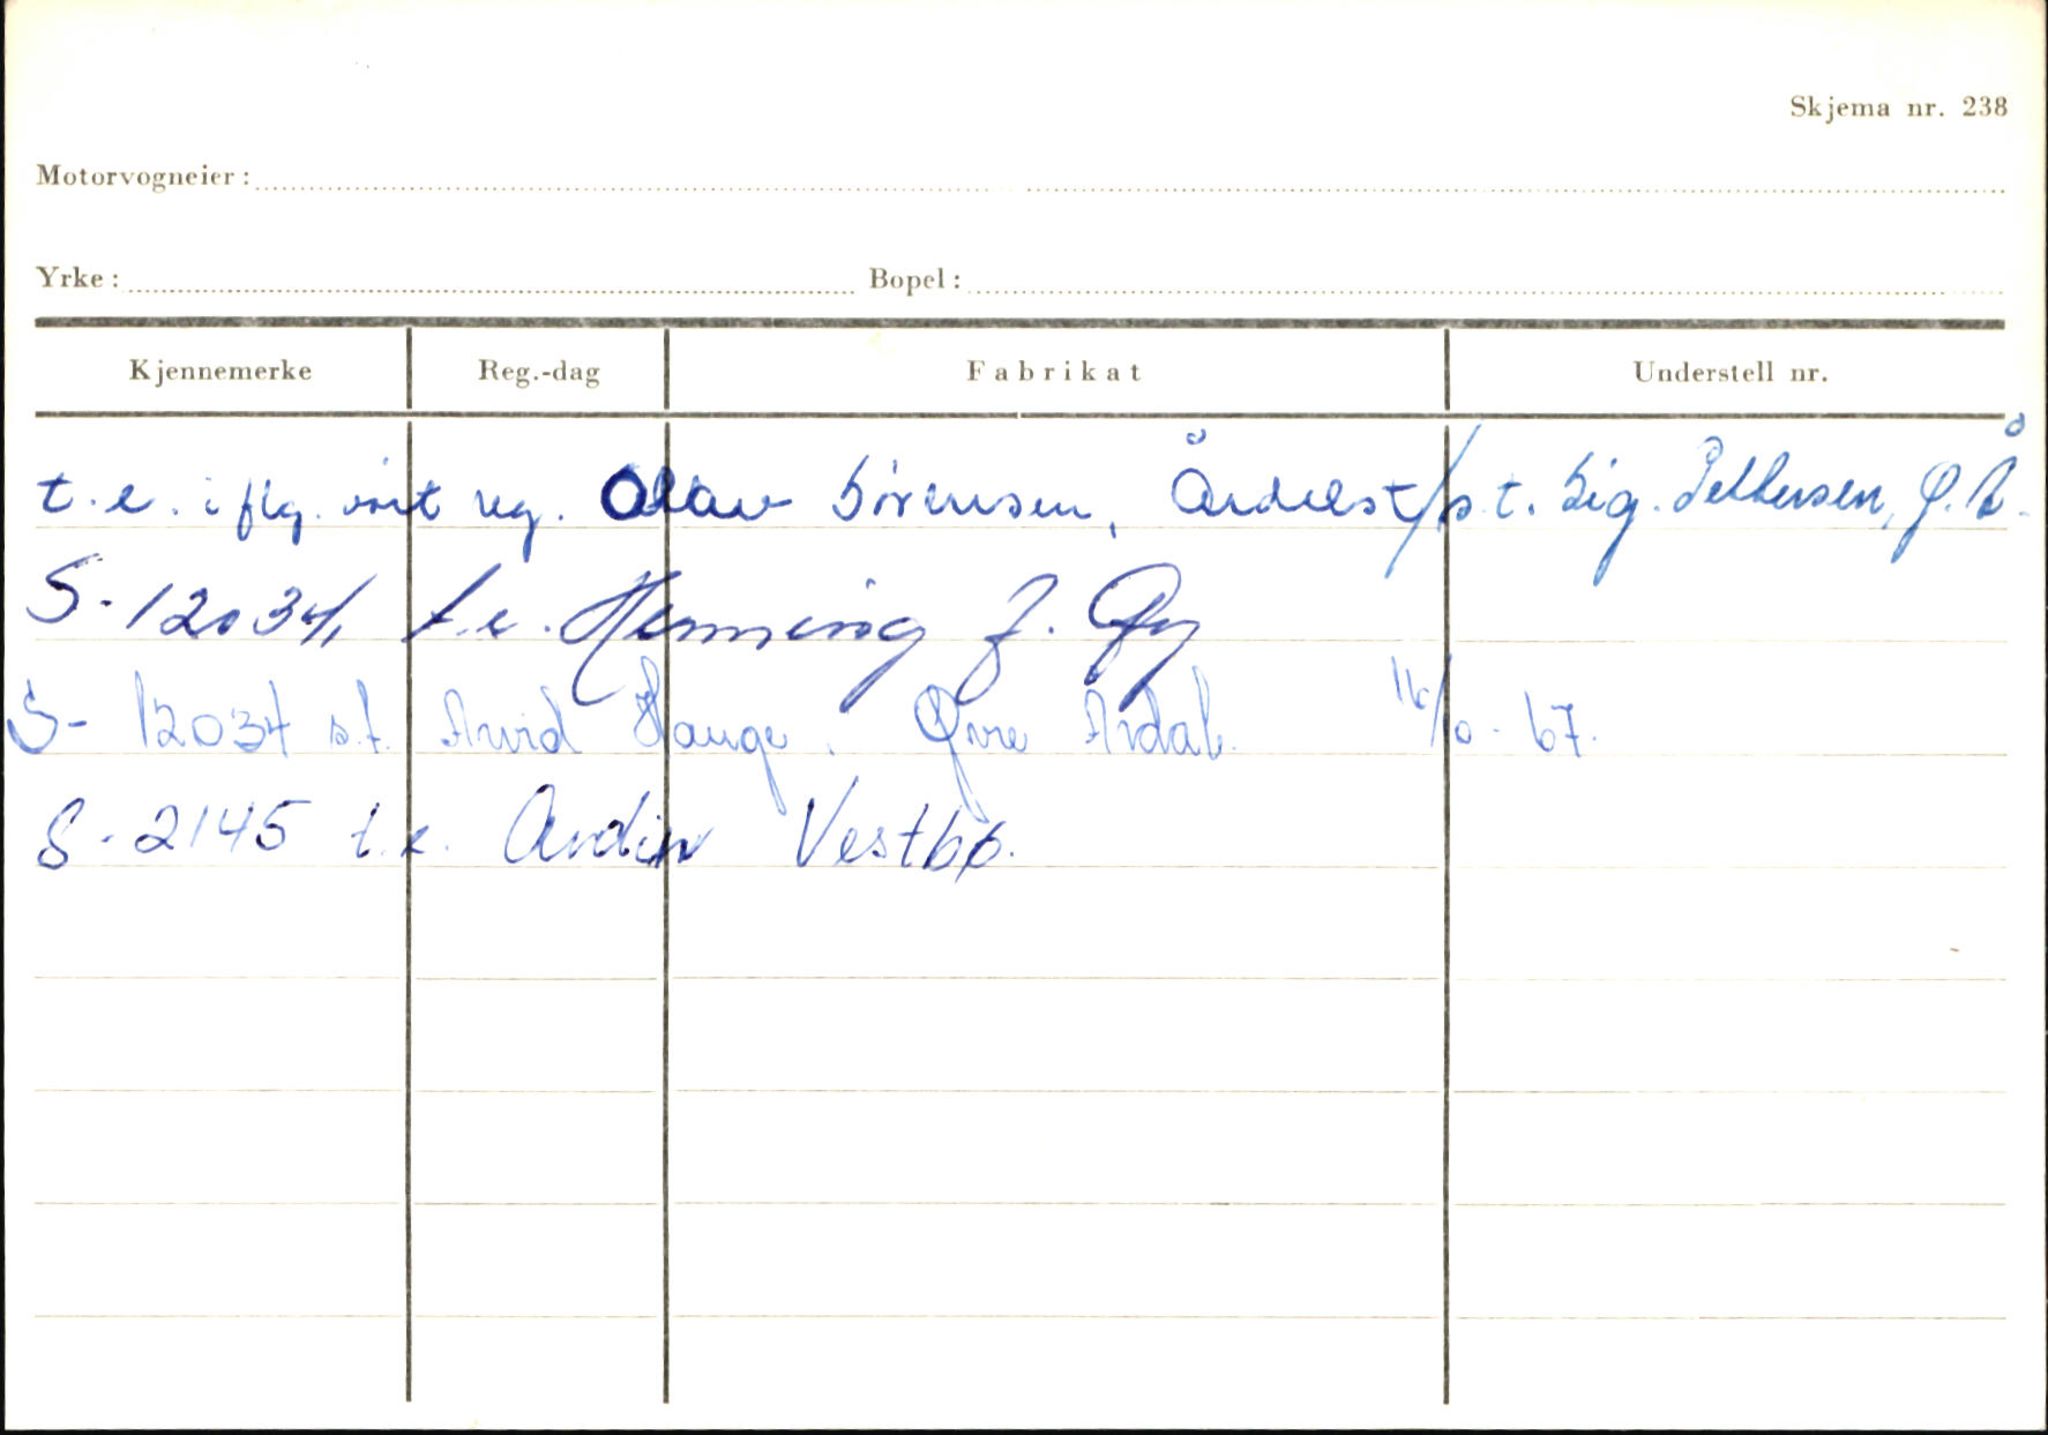 Skjema nr. 238
Motorvogneier:
Yrke: Bopel:
Kjennemerke Reg.-dag Fabrikat Understell nr.
t.e. iflg. vårt reg. Olav Sörensen, Årdalst/s.t. Sig. Pettersen, Ø.Å.
S-12034, t.e. Henning J. Øy
S- 12034 s.t. Arvid Hauge. Øvre Årdal. 16/10-67.
S-2145 t.e. Andin Vestbö.